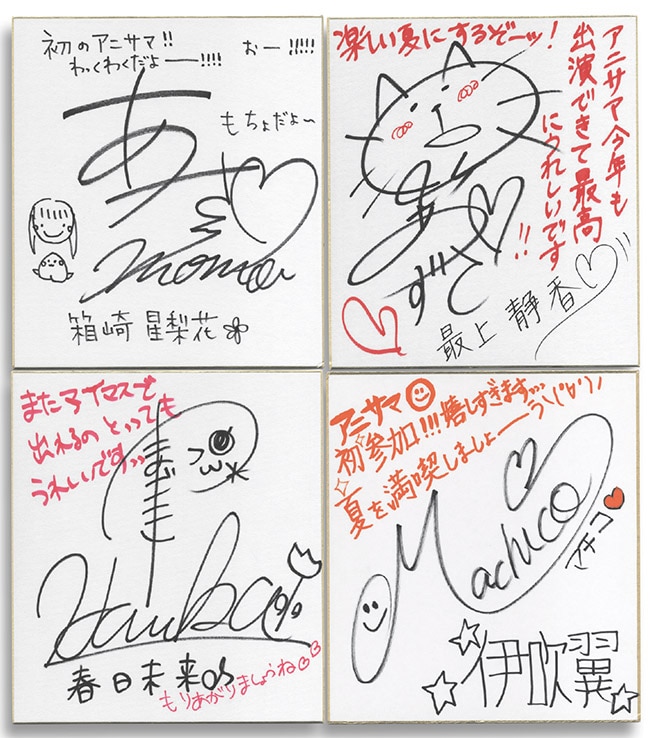 初のアニサマ!!
わくわくだよー!!!!
おー!!!!!
もちょだよ〜
あ
momo
箱崎 星梨花
楽しい夏にするぞーッ!
アニサマ今年も
出演できて最高
にうれしいです
!!
あ
ずく
最上 静香
またアイマスで
出れるの とっても
うれしいです
春日未来
もりあがりましょうね
アニサマ
初参加!!!嬉しすぎます…
夏を満喫しましょーう\('∀')/
Machico
マチコ
伊吹翼